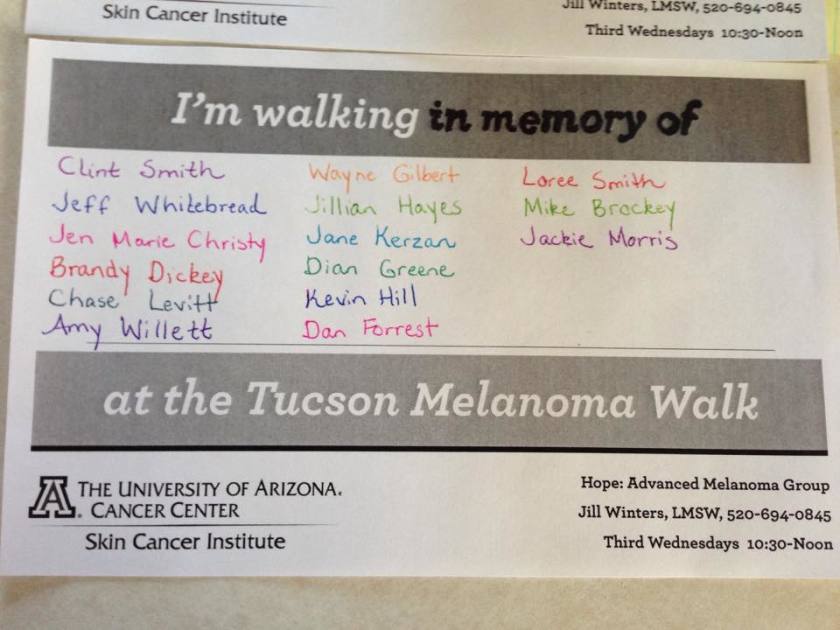 Skin Cancer Institute
Jill Winters, LMSW, 520-694-0845
Third Wednesdays 10:30-Noon
I'm walking in memory of
Clint Smith
Jeff Whitebread
Jen Marie Christy
Brandy Dickey
Chase Levitt
Amy Willett
Wayne Gilbert
Jillian Hayes
Jane Kerzan
Dian Greene
Kevin Hill
Dan Forrest
Loree Smith
Mike Brockey
Jackie Morris
at the Tucson Melanoma Walk
A THE UNIVERSITY OF ARIZONA.
CANCER CENTER
Skin Cancer Institute
Hope: Advanced Melanoma Group
Jill Winters, LMSW, 520-694-0845
Third Wednesdays 10:30-Noon